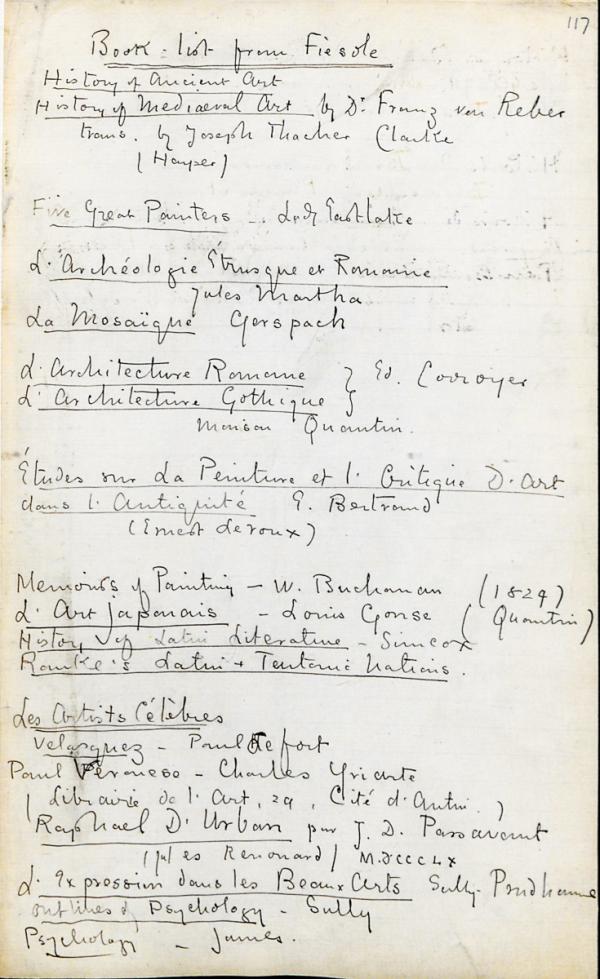 117
Book-list from Fiesole
History of Ancient Art
History of Mediaeval Art by Dr Franz von Reber
trans. by Joseph Thacher Clarke
(Harper)
Five Great Painters - Lady Eastlake
L'Archéologie Étrusque et Romaine
Jules Martha
La Mosaïque Gerspach
L'Architecture Romane } Ed. Corroyer
L'Architecture Gothique }
Maison Quantin.
Études sur La Peinture et l'Critique D'art
dans l'Antiquité E. Bertrand
(Ernest Leroux)
Memoirs of Painting - W. Buchanan (1824)
L'Art Japonais - Louis Gonse (Quantin)
History of Latin Literature - Simcox
Ranke's Latin + Teutonic Nations.
Les Artists Célèbres
Velasquez - Paul Lefort
Paul Veronese - Charles Yriarte
(Librairie de l'Art, 29, Cité d'Antin.)
Raphael D'Urban par J. D. Passavant
(Jules Renouard) M.DCCCLX
L'Expression dans les Beaux Arts Sully-Prudhomme
outlines of Psychology - Sully
Psychology - James.